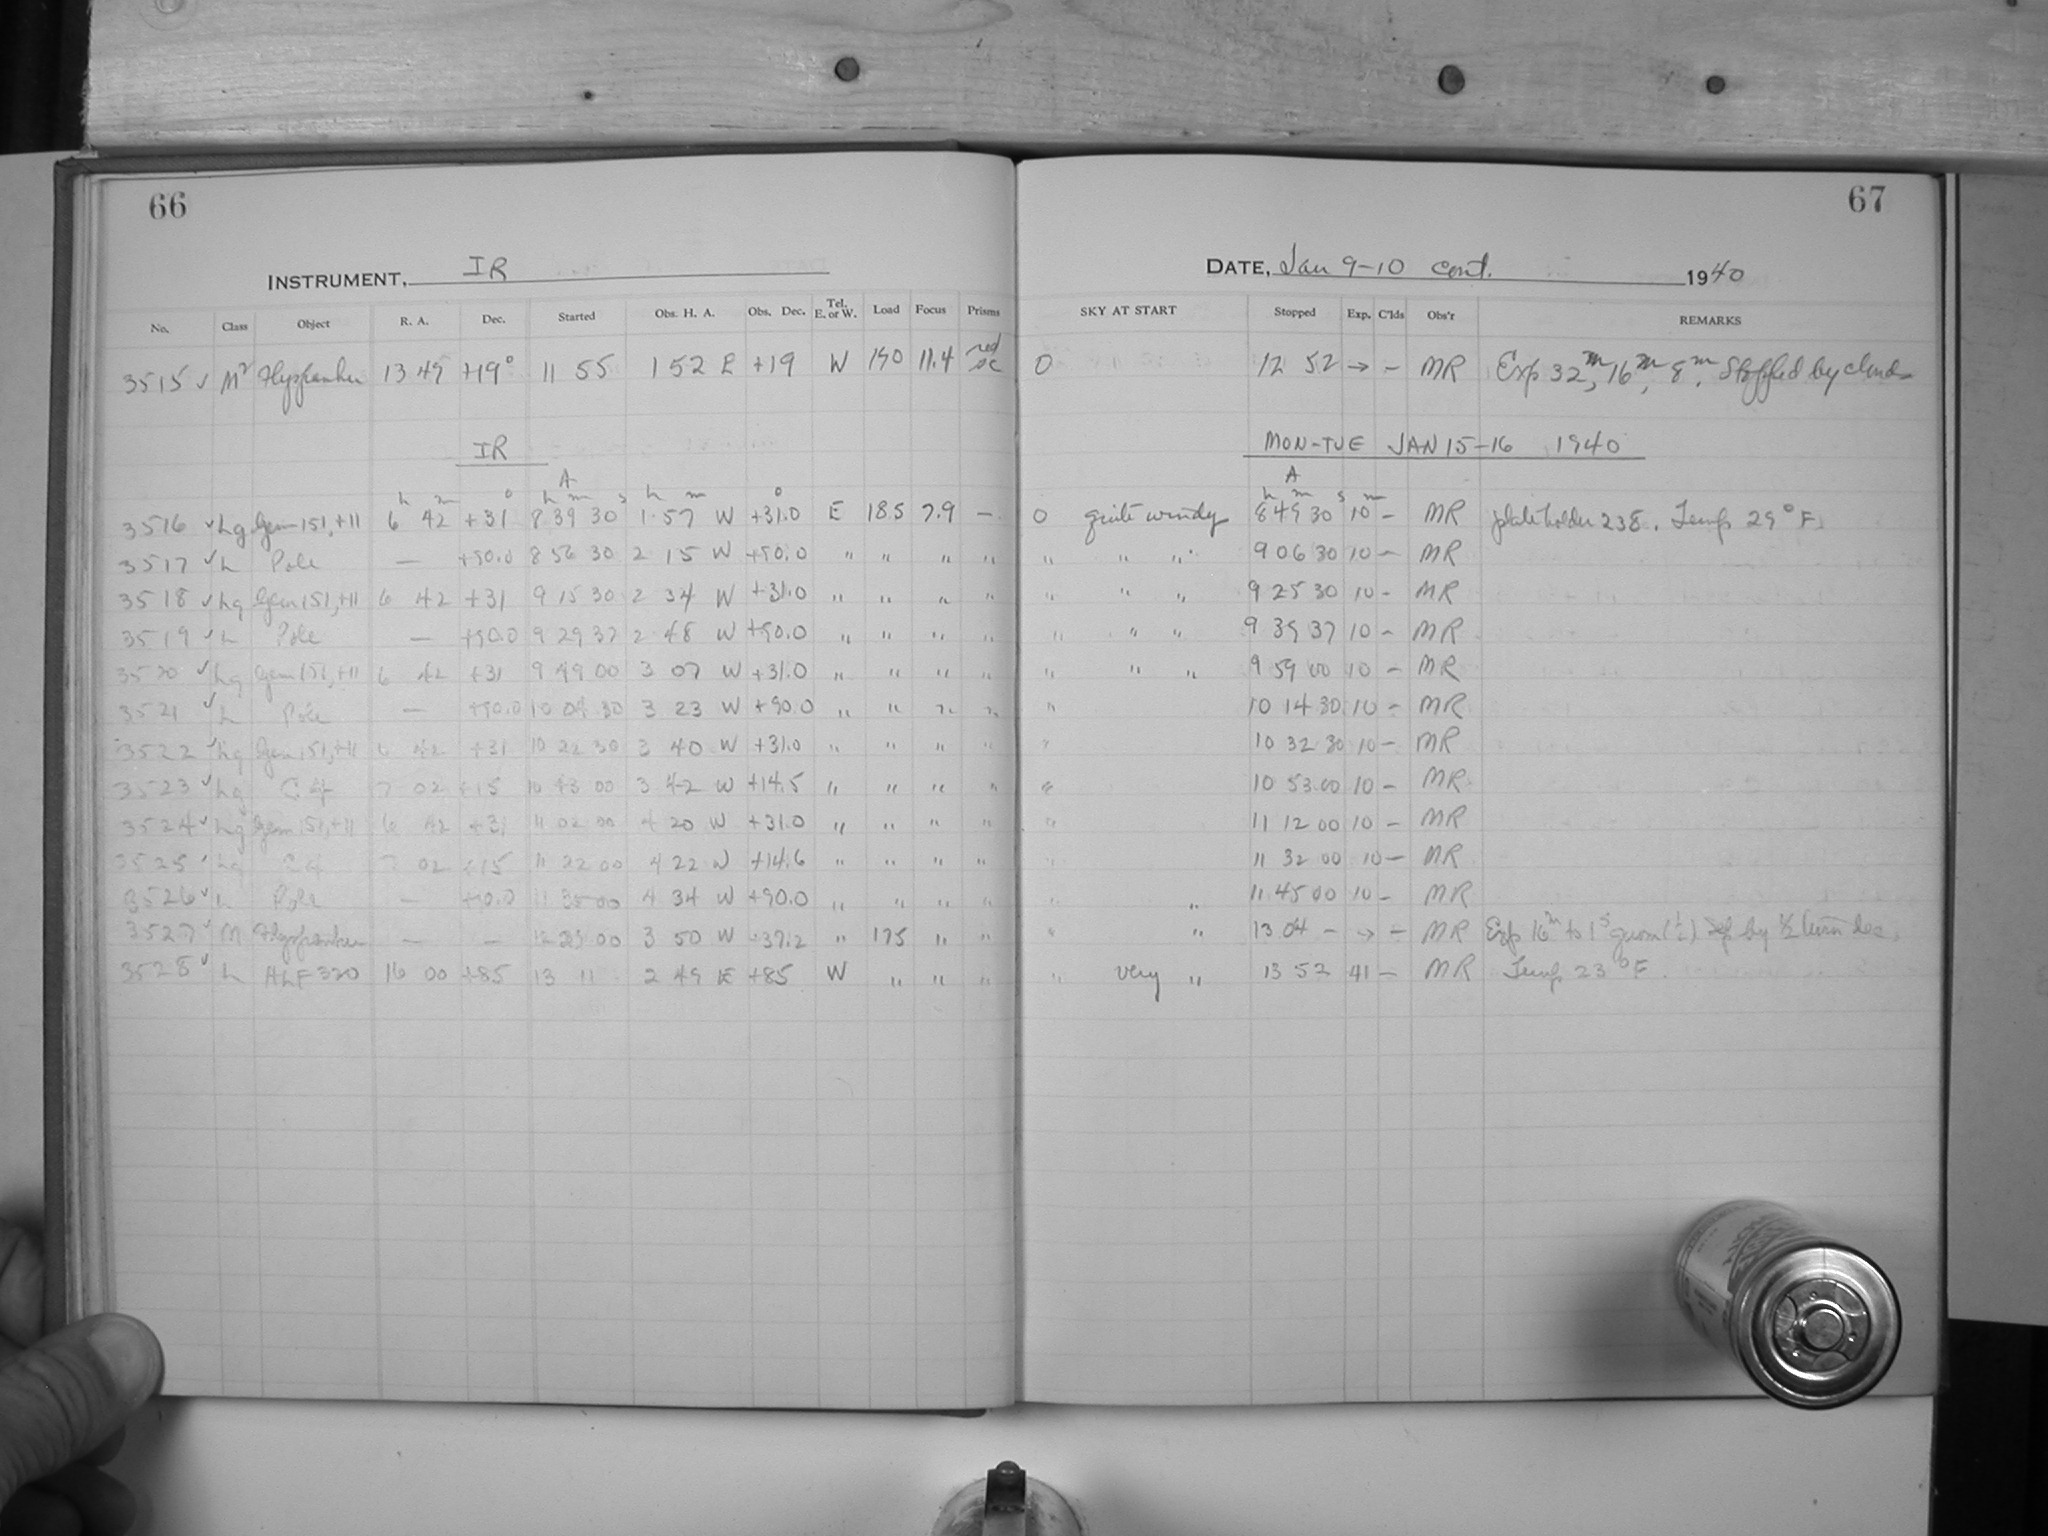 66
67
INSTRUMENT, IR
DATE, Jan 9-10 cont. 1940
No. Class Object R. A. Dec. Started Obs. H. A. Obs. Dec. Tel. E. or W. Load Focus Prisms SKY AT START Stopped Exp. C'lds Obs'r REMARKS
3515 ✓ M 13 49 +19° 11 55 1 52 E +19 W 190 11.4 red 0 12 52 → - MR Exp 32m, 16m, 8m. Stopped by clouds
IR MON-TUE JAN 15-16 1940
A A
h m ° h m s h m ° h m s m
3516 ✓ Lg Gem 151, +11 6 42 +31 8 39 30 1 57 W +31.0 E 185 7.9 - 0 quite windy 8 49 30 10 - MR plateholder 238. Temp 29° F.
3517 ✓ L Pole — +90.0 8 56 30 2 15 W +90.0 " " " " " " " 9 06 30 10 - MR
3518 ✓ Lg Gem 151, +11 6 42 +31 9 15 30 2 34 W +31.0 " " " " " " " 9 25 30 10 - MR
3519 ✓ L Pole — +90.0 9 29 37 2 48 W +90.0 " " " " " " " 9 39 37 10 - MR
3520 ✓ Lg Gem 151, +11 6 42 +31 9 49 00 3 07 W +31.0 " " " " " " " 9 59 00 10 - MR
3521 ✓ L Pole — +90.0 10 04 30 3 23 W +90.0 " " " " " 10 14 30 10 - MR
3522 ✓ Lg Gem 151, +11 6 42 +31 10 22 30 3 40 W +31.0 " " " " " 10 32 30 10 - MR
3523 ✓ Lg C4 7 02 +15 10 43 00 3 42 W +14.5 " " " " " 10 53 00 10 - MR
3524 ✓ Lg Gem 151, +11 6 42 +31 11 02 00 4 20 W +31.0 " " " " " 11 12 00 10 - MR
3525 ✓ Lg C4 7 02 +15 11 22 00 4 22 W +14.6 " " " " " 11 32 00 10 - MR
3526 ✓ L Pole — +90.0 11 35 00 4 34 W +90.0 " " " " " " 11 45 00 10 - MR
3527 ✓ M — — 00 3 50 W +37.2 " 175 " " " " 13 04 - → - MR Exp 16m to 1s by ½ turn dec.
3528 ✓ L ALF 320 16 00 +85 13 11 2 49 E +85 W " " " " very " 13 52 41 - MR Temp 23° F.